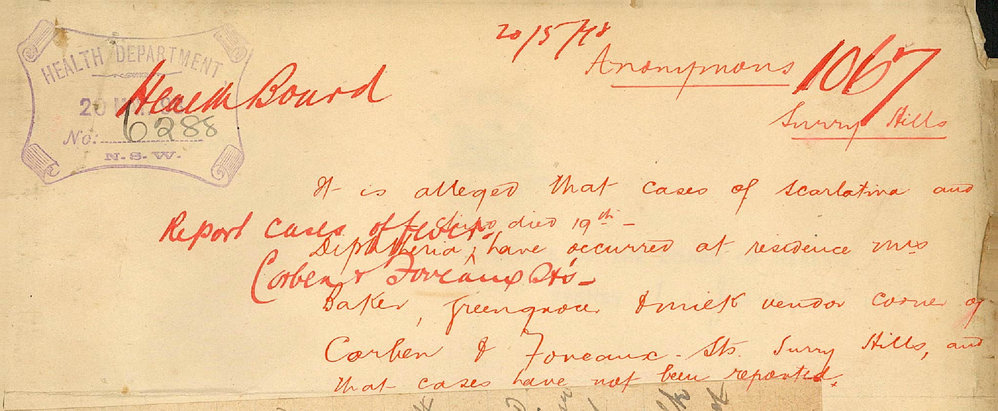 20/5/98
Anonymous 1067
HEALTH DEPARTMENT
Health Board
20
No. 6288
N.S.W.
Surry Hills
It is alleged that cases of Scarlatina and
Report cases of fever
died 19th –
Diphtheria, have occurred at residence Mrs
Corben & Foveaux Sts –
Baker, greengrocer & milk vendor corner of
Corben & Foveaux - Sts. Surry Hills, and
that cases have not been reported.